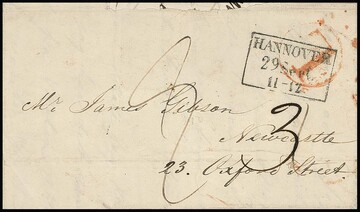 HANNOVER
29 Sept.
11-12
Mr. James Gibson
Newcastle
3
23. Oxford Street.